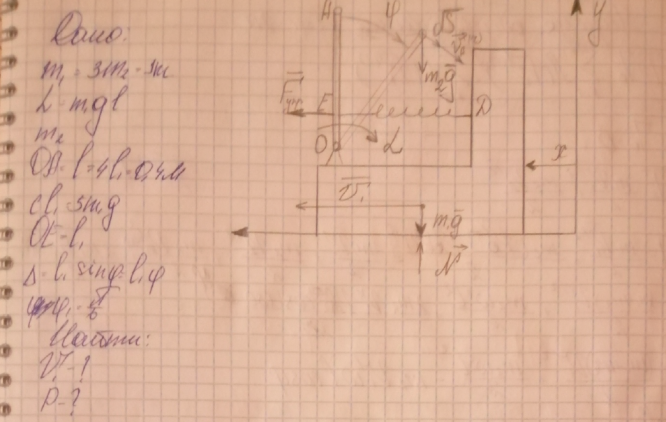 Дано:
m₁ = 3m₂ = 3m
L = mgl
m₂
OA = l = 4l₁ = 0,4м
cl₁ = 3mg
OE = l₁
Δ = l₁ sinφ = l₁φ
φ = φ₁ = π/6
Найти:
V₁ - ?
A
φ
y
m₂g
E
D
O
L
x
V₁
m₁g
N